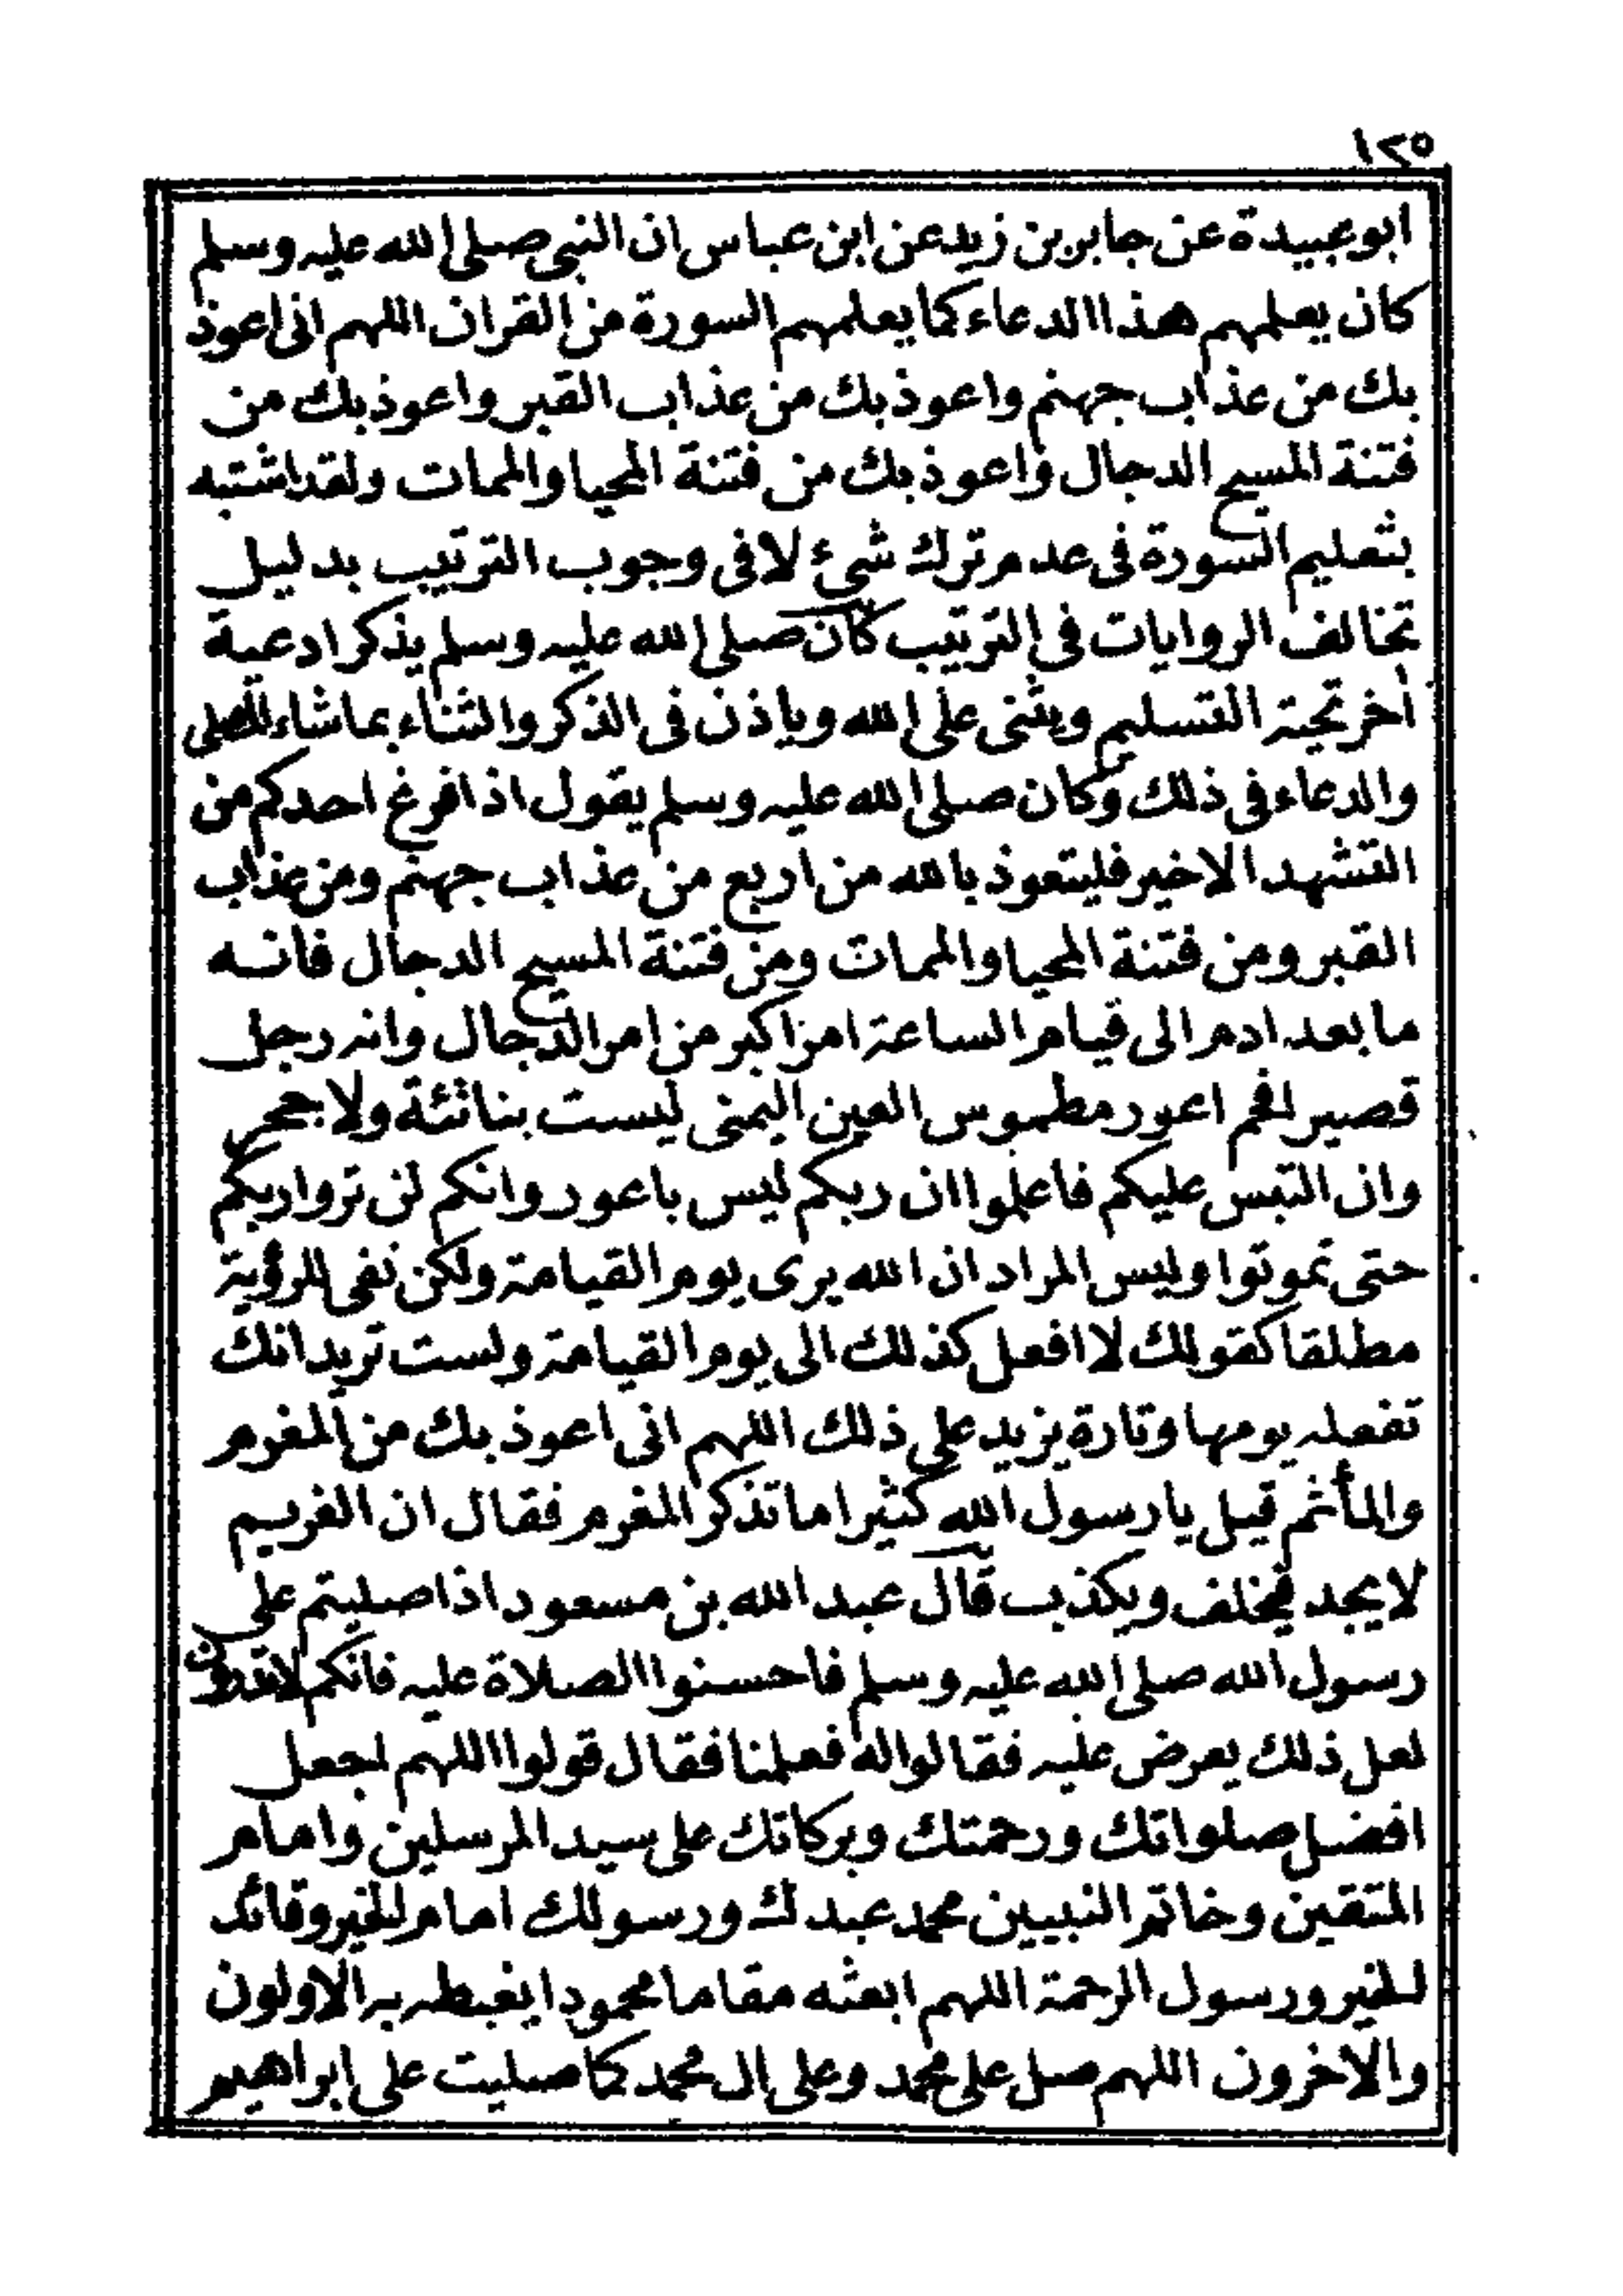 ١٢٥
ابو عبيدة عن جابر بن زيد عن ابن عباس ان النبى صلى الله عليه وسلم
كان يعلمهم هذا الدعاء كما يعلمهم السورة من القران اللهم انى اعوذ
بك من عذاب جهنم واعوذ بك من عذاب القبر واعوذ بك من
فتنة المسيح الدجال واعوذ بك من فتنة المحيا والممات ولقد اشتبه
بتعليم السورة فى عدم ترك شىء لا فى وجوب الترتيب بدليل
تخالف الروايات فى الترتيب كان صلى الله عليه وسلم يذكر ادعية
أخر تحية التسليم ويثنى على الله وياذن فى الذكر والثناء بما شاء المصلى
والدعاء فى ذلك وكان صلى الله عليه وسلم يقول اذا فرغ احدكم من
التشهد الاخير فليتعوذ بالله من اربع من عذاب جهنم ومن عذاب
القبر ومن فتنة المحيا والممات ومن فتنة المسيح الدجال فانه
ما بعد ادم الى قيام الساعة امر اكبر من امر الدجال وانه رجل
قصير افحج اعور مطموس العين اليمنى ليست بناتئة ولا جحر
وان التبس عليكم فاعلموا ان ربكم ليس باعور وانكم لن تروا ربكم
حتى تموتوا وليس المراد ان الله يرى يوم القيامة ولكن نفى للرؤية
مطلقا كقولك لا افعل كذلك الى يوم القيامة ولست تريد انك
تفعله يومها وتارة يزيد على ذلك اللهم انى اعوذ بك من المغرم
والمأثم قيل يا رسول الله كثيرا ما تذكر المغرم فقال ان الغريم
لا يجد فيخلف ويكذب قال عبد الله بن مسعود اذا صليتم على
رسول الله صلى الله عليه وسلم فاحسنوا الصلاة عليه فانكم لا تدرون
لعل ذلك يعرض عليه فقالوا له فعلمنا فقال قولوا اللهم اجعل
افضل صلواتك ورحمتك وبركاتك على سيد المرسلين وامام
المتقين وخاتم النبيين محمد عبدك ورسولك امام الخير وقائد
الخير ورسول الرحمة اللهم ابعثه مقاما محمودا يغبطه به الاولون
والاخرون اللهم صل على محمد وعلى ال محمد كما صليت على ابراهيم